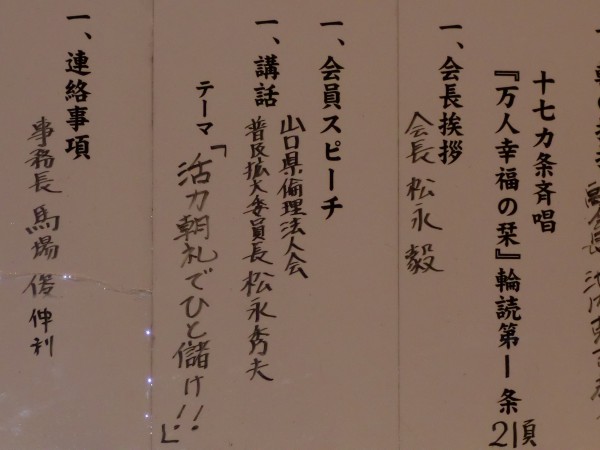 十七カ条斉唱
『万人幸福の栞』輪読第1条
21頁
一、会長挨拶
会長 松永 毅
一、会員スピーチ
一、講話
山口県倫理法人会
普及拡大委員長 松永秀夫
テーマ「活力朝礼でひと儲け!!」
一、連絡事項
事務長 馬場 俊伸利